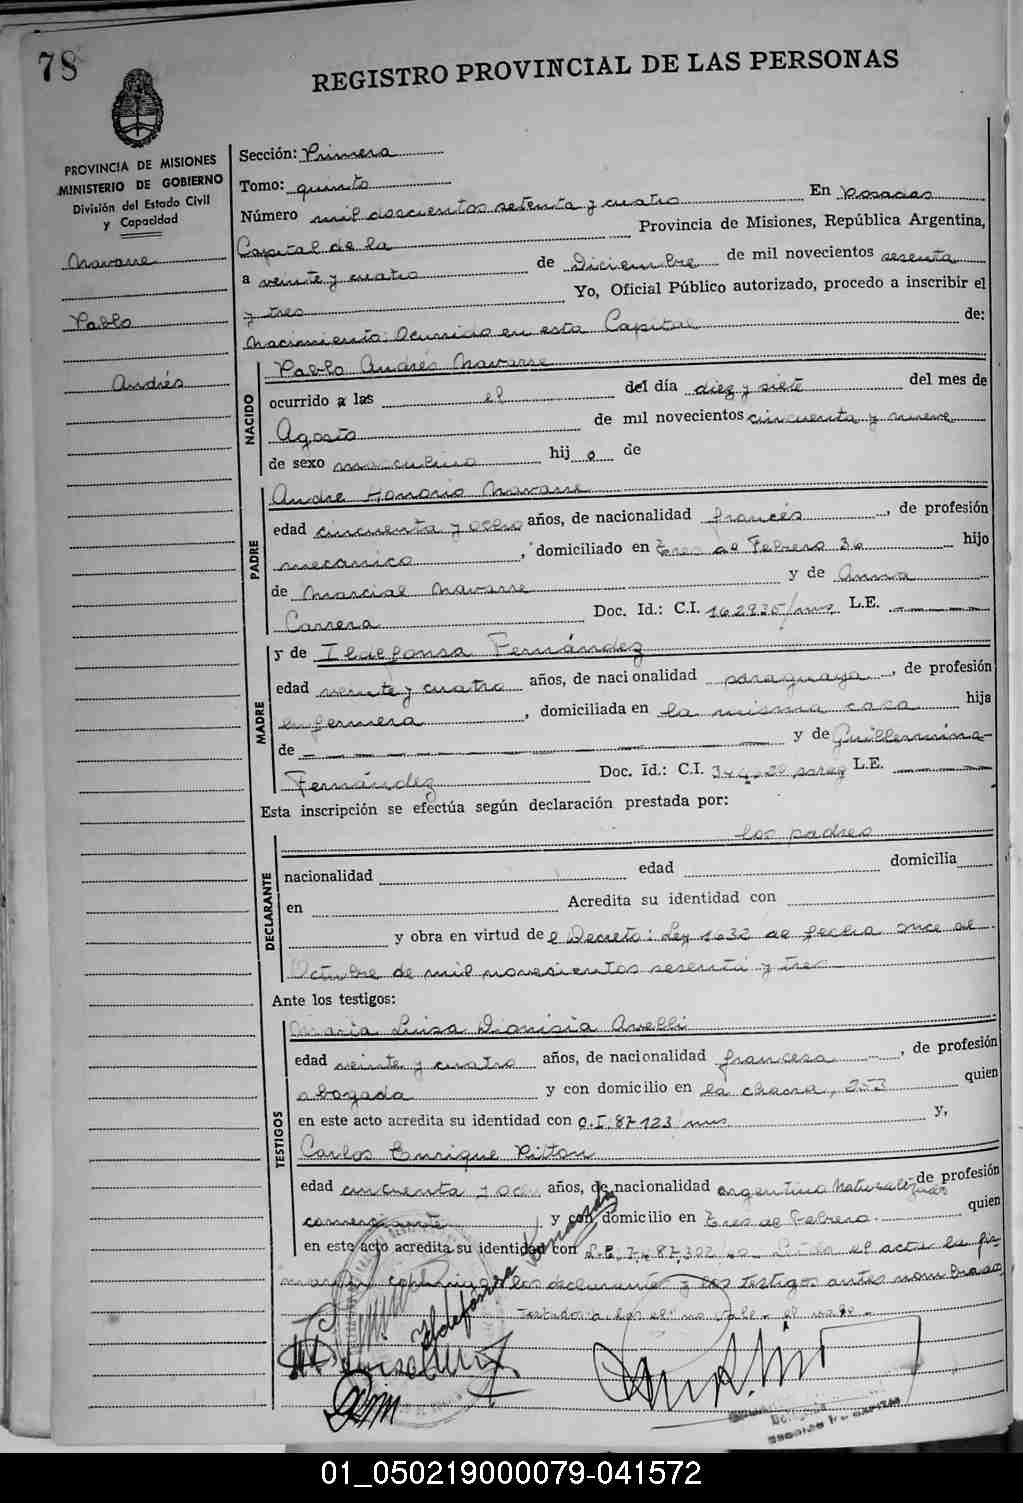 78
REGISTRO PROVINCIAL DE LAS PERSONAS
PROVINCIA DE MISIONES
MINISTERIO DE GOBIERNO
División del Estado Civil
y Capacidad
Navarre
Pablo
Andrés
Sección: Primera
Tomo: quinto
Número mil doscientos setenta y cuatro En Posadas
Capital de la Provincia de Misiones, República Argentina,
a veinte y cuatro de Diciembre de mil novecientos sesenta
y tres Yo, Oficial Público autorizado, procedo a inscribir el
Nacimiento: Ocurrido en esta Capital de:
NACIDO
Pablo Andrés Navarre
ocurrido a las el del día diez y siete del mes de
Agosto de mil novecientos cincuenta y nueve
de sexo masculino hijo de
PADRE
Andre Honorio Navarre
edad cincuenta y ocho años, de nacionalidad francés, de profesión
mecanico, domiciliado en Tres de Febrero 36 hijo
de Marcial Navarre y de Anna
Carrera Doc. Id.: C.I. 162930/mns L.E.
MADRE
y de Ildefonsa Fernández
edad veinte y cuatro años, de nacionalidad paraguaya, de profesión
enfermera, domiciliada en la misma casa hija
de y de Guillermina
Fernández Doc. Id.: C.I. parag L.E.
Esta inscripción se efectúa según declaración prestada por:
DECLARANTE
los padres
nacionalidad edad domicilia
en Acredita su identidad con
y obra en virtud del Decreto: Ley 1632 de fecha once de
Octubre de mil novesientos sesenta y tres
Ante los testigos:
TESTIGOS
Maria Luisa Dionisia Avelli
edad veinte y cuatro años, de nacionalidad francesa, de profesión
abogada y con domicilio en la chacra, 253 quien
en este acto acredita su identidad con C.I. 87.123 mns y,
Carlos Enrique Pitton
edad cincuenta y ocho años, de nacionalidad argentino Naturalizado de profesión
comerciante y con domicilio en Tres de Febrero quien
en este acto acredita su identidad con L.E. 7.487.302 Leída el acta la fir-
man los declarantes y los testigos antes nombrados
Testado: a las el: no vale. el vale.
Ildefonsa Fernández
01_050219000079-041572